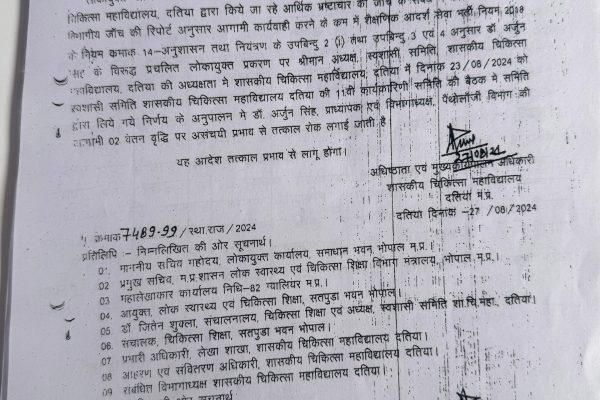 चिकित्सा महाविद्यालय, दतिया द्वारा किये जा रहे आर्थिक भ्रष्टाचार की जाँच के
विभागीय जाँच की रिपोर्ट अनुसार आगामी कार्यवाही करने के कम में शैक्षणिक आदर्श सेवा भर्ती नियम 2018
के नियम कमाक 14-अनुशासन तथा नियंत्रण के उपबिन्दु 2 (i) तथा उपबिन्दु 3 एवं 4 अनुसार डॉ अर्जुन
के विरुद्ध प्रचलित लोकायुक्त प्रकरण पर श्रीमान अध्यक्ष, स्वशासी समिति, शासकीय चिकित्सा
महाविद्यालय, दतिया की अध्यक्षता मे शासकीय चिकित्सा महाविद्यालय, दतिया में दिनांक 23/08/2024 को
स्वशासी समिति शासकीय चिकित्सा महाविद्यालय दतिया की 11वीं कार्यकारिणी समिति की बैठक मे समिति
द्वारा लिये गये निर्णय के अनुपालन मे डॉ. अर्जुन सिंह, प्राध्यापक एवं विभागाध्यक्ष, पैथोलॉजी विभाग की
आगामी 02 वेतन वृद्धि पर असंचयी प्रभाव से तत्काल रोक लगाई जाती है
यह आदेश तत्काल प्रभाव से लागू होंगा।
अधिष्ठाता एवं मुख्यकार्यपालन अधिकारी
शासकीय चिकित्सा महाविद्यालय
दतिया म.प्र.
कमाक 7489-99 /स्था.राज/2024
दतिया दिनाक -27 /08/2024
प्रतिलिपि :- निम्नलिखित की ओर सूचनार्थ।
01. माननीय सचिव महोदय, लोकायुक्त कार्यालय, समाधान भवन, भोपाल म.प्र.।
02 प्रमुख सचिव, म.प्र.शासन लोक स्वास्थ्य एवं चिकित्सा शिक्षा विभाग मंत्रालय, भोपाल, म.प्र.।
03 महालेखाकार कार्यालय निधि-82 ग्वालियर म.प्र.।
04. आयुक्त, लोक स्वास्थ्य एवं चिकित्सा शिक्षा, सतपुडा भवन भोपाल।
05 डॉ जितेन शुक्ला, संचालनालय, चिकित्सा शिक्षा एवं अध्यक्ष, स्वशासी समिति शा.चि.महा., दतिया।
06. सचालक, चिकित्सा शिक्षा, सतपुडा भवन भोपाल।
07 प्रभारी अधिकारी, लेखा शाखा, शासकीय चिकित्सा महाविद्यालय दतिया।
08 आहरण एवं संवितरण अधिकारी, शासकीय चिकित्सा महाविद्यालय दतिया।
09 सबंधित विभागाध्यक्ष शासकीय चिकित्सा महाविद्यालय दतिया।
की ओर सूचनार्थ